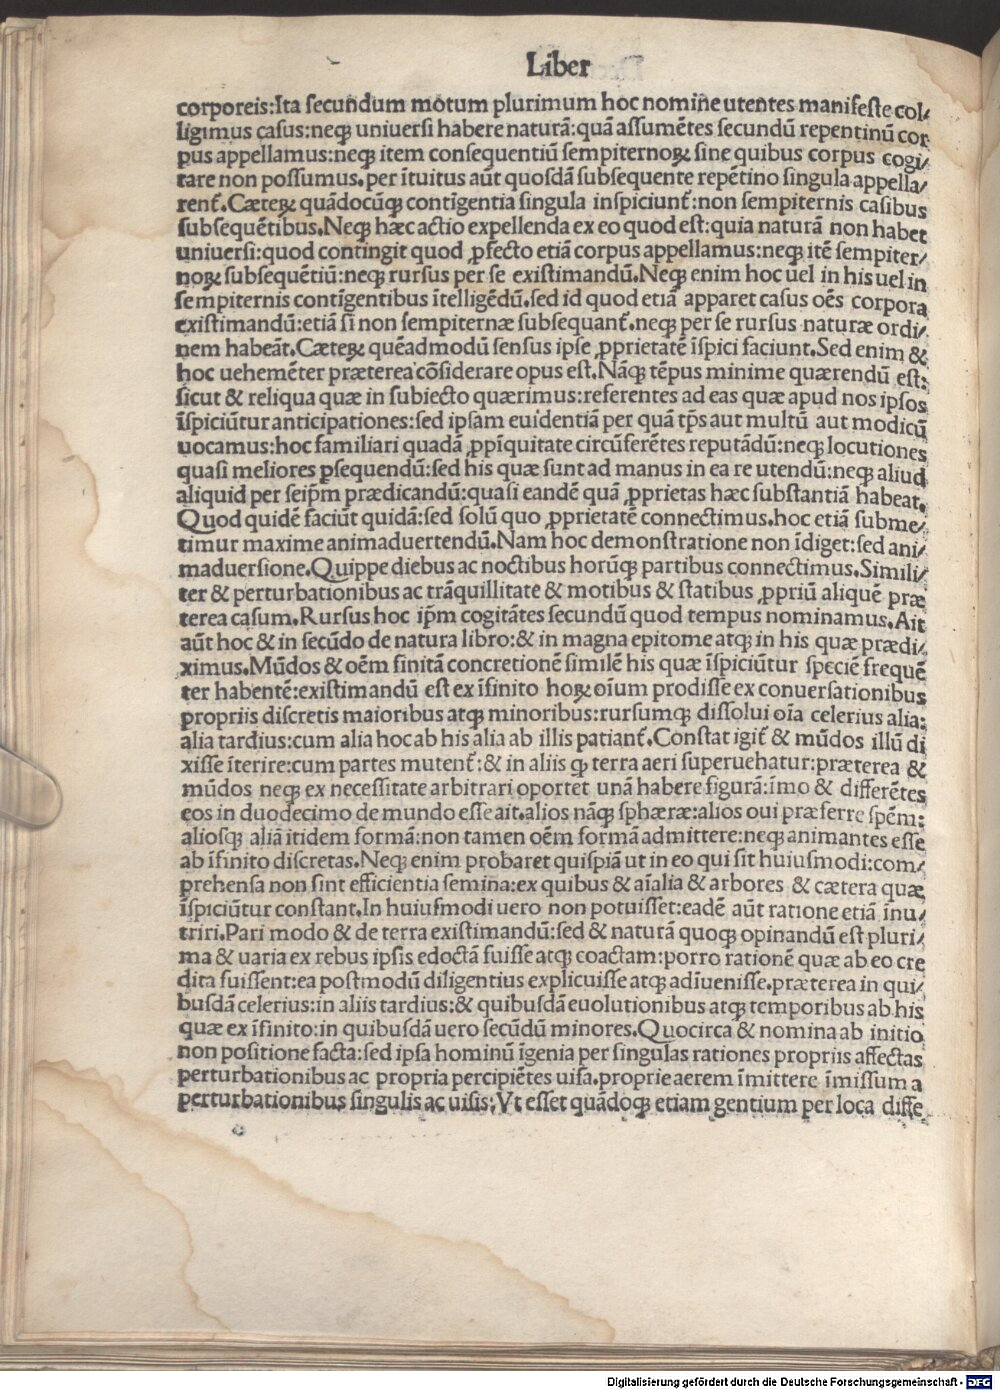 Liber
corporeis:Ita ſecundum motum plurimum hoc nomine utentes manifeſte col⸗
ligimus caſus:neqꝫ uniuerſi habere naturā:quā aſſumētes ſecundū repentinū cor
pus appellamus:neqꝫ item conſequentiū ſempiternoꝝ ſine quibus corpus cogi⸗
tare non poſſumus.per ītuitus aūt quoſdā ſubſequente repētino ſingula appella⸗
rent᷑.Cæteꝝ quādocūqꝫ contigentia ſingula inſpiciunt᷑:non ſempiternis caſibus
ſubſequētibus.Neqꝫ hæc actio expellenda ex eo quod eſt:quia naturā non habet
uniuerſi:quod contingit quod ꝓfecto etiā corpus appellamus:neqꝫ itē ſempiter⸗
noꝝ ſubſequētiū:neqꝫ rurſus per ſe exiſtimandū.Neqꝫ enim hoc uel in his uel in
ſempiternis contīgentibus ītelligēdū.ſed id quod etiā apparet caſus oēs corpora
exiſtimandū:etiā ſi non ſempiternæ ſubſequant᷑.neqꝫ per ſe rurſus naturæ ordi⸗
nem habeāt.Cæteꝝ quēadmodū ſenſus ipſe ꝓprietatē īſpici faciunt.Sed enim &
hoc uehemēter præterea cōſiderare opus eſt.Nāqꝫ tēpus minime quærendū eſt:
ſicut & reliqua quæ in ſubiecto quærimus:referentes ad eas quæ apud nos ipſos
īſpiciūtur anticipationes:ſed ipſam euidentiā per quā tp̄s aut multū aut modicū
uocamus:hoc familiari quadā ꝓpīquitate circūferētes reputādū:neqꝫ locutiones
quaſi meliores ꝑſequendū:ſed his quæ ſunt ad manus in ea re utendū:neqꝫ aliud
aliquid per ſeip̄m prædicandū:quaſi eandē quā ꝓprietas hæc ſubſtantiā habeat.
Quod quidē faciūt quidā:ſed ſolū quo ꝓprietatē connectimus.hoc etiā ſubme⸗
timur maxime animaduertendū.Nam hoc demonſtratione non īdiget:ſed ani⸗
maduerſione.Quippe diebus ac noctibus horūqꝫ partibus connectimus.Simili⸗
ter & perturbationibus ac trāquillitate & motibus & ſtatibus ꝓpriū aliquē præ
terea caſum.Rurſus hoc ip̄m cogitātes ſecundū quod tempus nominamus.Ait
aūt hoc & in ſecūdo de natura libro:& in magna epitome atqꝫ in his quæ prædi⸗
ximus.Mūdos & oēm finitā concretionē ſimilē his quæ īſpiciūtur ſpeciē frequē
ter habentē:exiſtimandū eſt ex īfinito hoꝝ oīum prodiſſe ex conuerſationibus
propriis diſcretis maioribus atqꝫ minoribus:rurſumqꝫ diſſolui oīa celerius alia:
alia tardius:cum alia hoc ab his alia ab illis patiant᷑.Conſtat igit᷑ & mūdos illū di
xiſſe īterire:cum partes mutent᷑:& in aliis ꝙ terra aeri ſuperuehatur:præterea &
mūdos neqꝫ ex neceſſitate arbitrari oportet unā habere figurā:īmo & differētes
eos in duodecimo de mundo eſſe ait.alios nāqꝫ ſphæræ:alios oui præferre ſpēm:
alioſqꝫ aliā itidem formā:non tamen oēm formā admittere:neqꝫ animantes eſſe
ab īfinito diſcretas.Neqꝫ enim probaret quiſpiā ut in eo qui ſit huiuſmodi:com⸗
prehenſa non ſint efficientia ſemina:ex quibus & aīalia & arbores & cætera quæ
īſpiciūtur conſtant.In huiuſmodi uero non potuiſſet:eadē aūt ratione etiā īnu⸗
triri.Pari modo & de terra exiſtimandū:ſed & naturā quoqꝫ opinandū eſt pluri⸗
ma & uaria ex rebus ipſis edoctā fuiſſe atqꝫ coactam:porro rationē quæ ab eo cre
dita fuiſſent:ea poſtmodū diligentius explicuiſſe atqꝫ adīueniſſe.præterea in qui⸗
buſdā celerius:in aliis tardius:& quibuſdā euolutionibus atqꝫ temporibus ab his
quæ ex īfinito:in quibuſdā uero ſecūdū minores.Quocirca & nomina ab initio
non poſitione facta:ſed ipſa hominū īgenia per ſingulas rationes propriis affectas
perturbationibus ac propria percipiētes uiſa.proprie aerem īmittere īmiſſum a
perturbationibus ſingulis ac uiſis:Vt eſſet quādoqꝫ etiam gentium per loca diffe
Digitalisierung gefördert durch die Deutsche Forschungsgemeinschaft - DFG